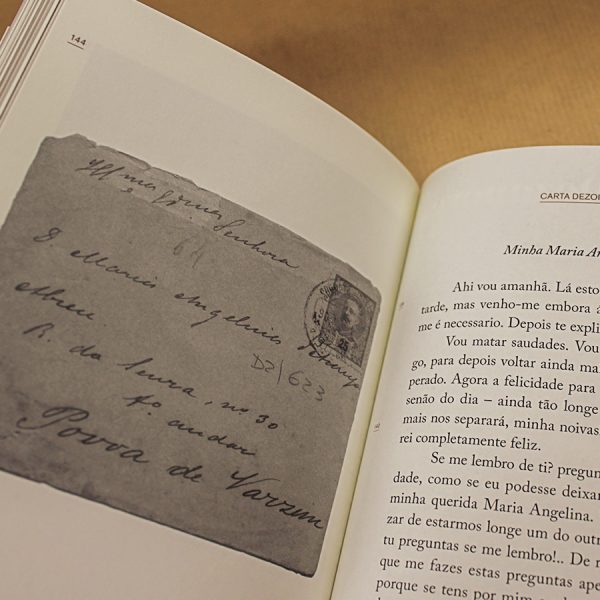 144
Illma Exma Senhora
D Maria Angelina
Abreu
R. da Senra, no 30
4º andar
Povoa de Varzim
D2/623
25
CARTA DEZO
Minha Maria An
Ahi vou amanhã. Lá esto
tarde, mas venho-me embora á
me é necessario. Depois te expli
Vou matar saudades. Vou
go, para depois voltar ainda ma
perado. Agora a felicidade para
senão do dia – ainda tão longe
mais nos separará, minha noivas
rei completamente feliz.
Se me lembro de ti? pregun
dade, como se eu podesse deixar
minha querida Maria Angelina.
zar de estarmos longe um do outr
tu preguntas se me lembro!.. De r
que me fazes estas preguntas ape
porque se tens por mim